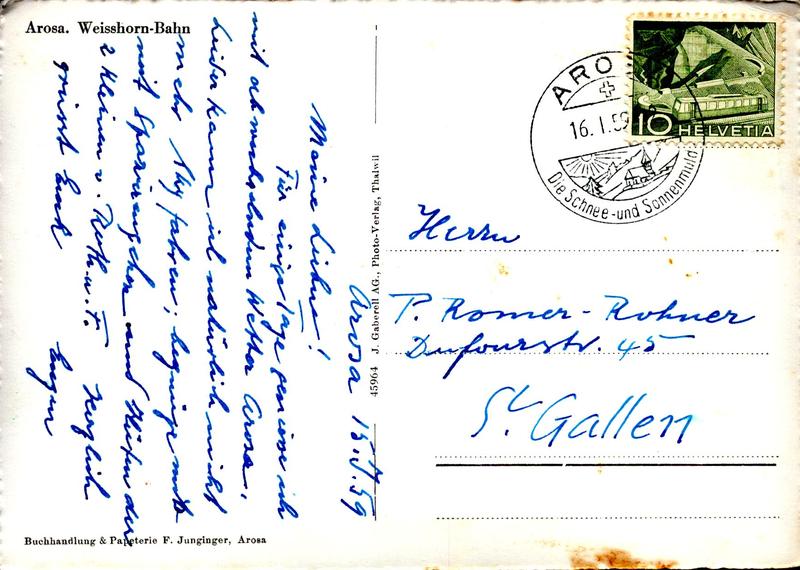 Arosa. Weisshorn-Bahn
Arosa 15.I.59
Meine Lieben!
Für einige Tage geniesse ich
mit abwechselndem Wetter Arosa.
Leider kann ich natürlich nicht
mehr Sky fahren; begnüge mich
mit Spazierengehen und Hüten der
2 Kleinen v. Ruth u. F. Herzlich
grüsst Euch Eugen
Buchhandlung & Papeterie F. Junginger, Arosa
45964 J. Gaberell AG., Photo-Verlag, Thalwil
ARO
16.I.59
Die Schnee- und Sonnenmuld
10 HELVETIA
Herrn
P. Romer-Rohner
Dufourstr. 45
St. Gallen